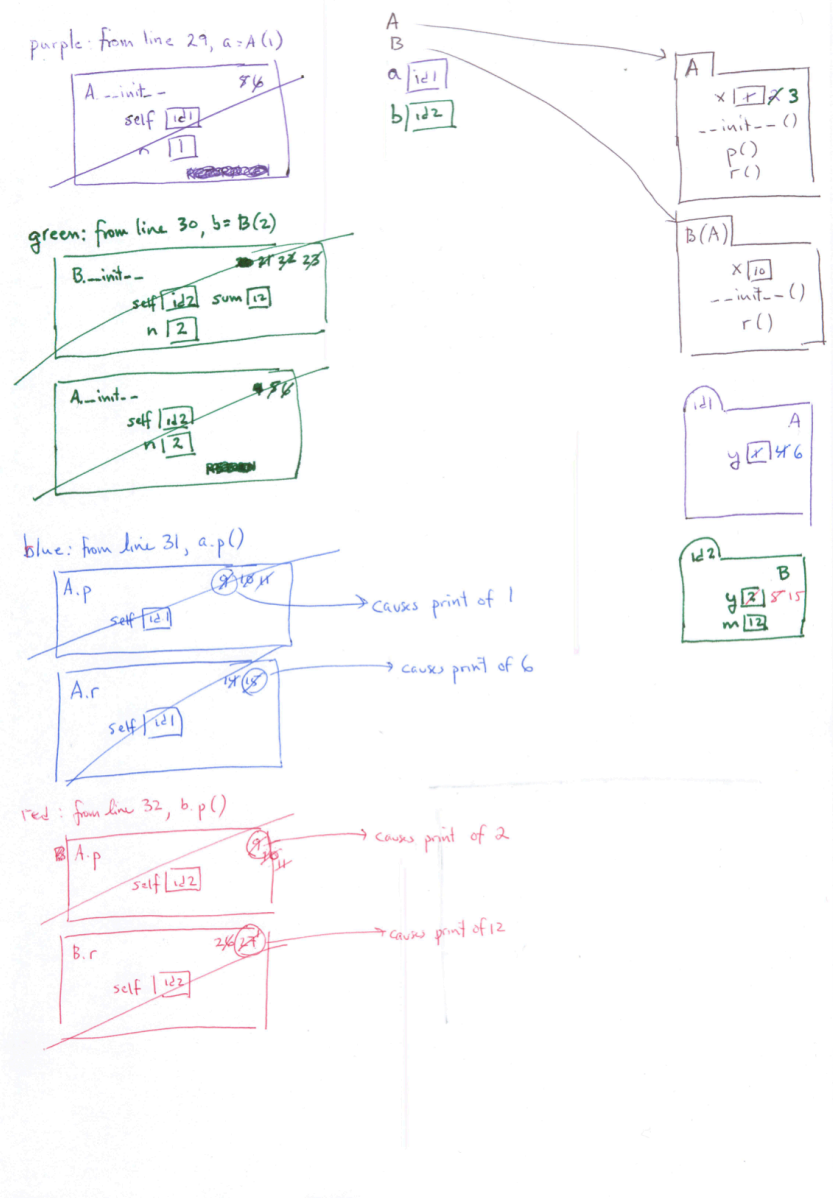 purple: from line 29, a=A(1)
A.__init__ 5 6
self id1
n 1
green: from line 30, b=B(2)
B.__init__ 21 22 23
self id2 sum 12
n 2
A.__init__ 5 6
self id2
n 2
blue: from line 31, a.p()
A.p 9 10 11
self id1
causes print of 1
A.r 14 15
self id1
causes print of 6
red: from line 32, b.p()
A.p 9 10 11
self id2
causes print of 2
B.r 26 27
self id2
causes print of 12
A
B
a id1
b id2
A
x 1 2 3
__init__()
p()
r()
B(A)
x 10
__init__()
r()
id1
A
y 1 4 6
id2
B
y 2 5 15
m 12